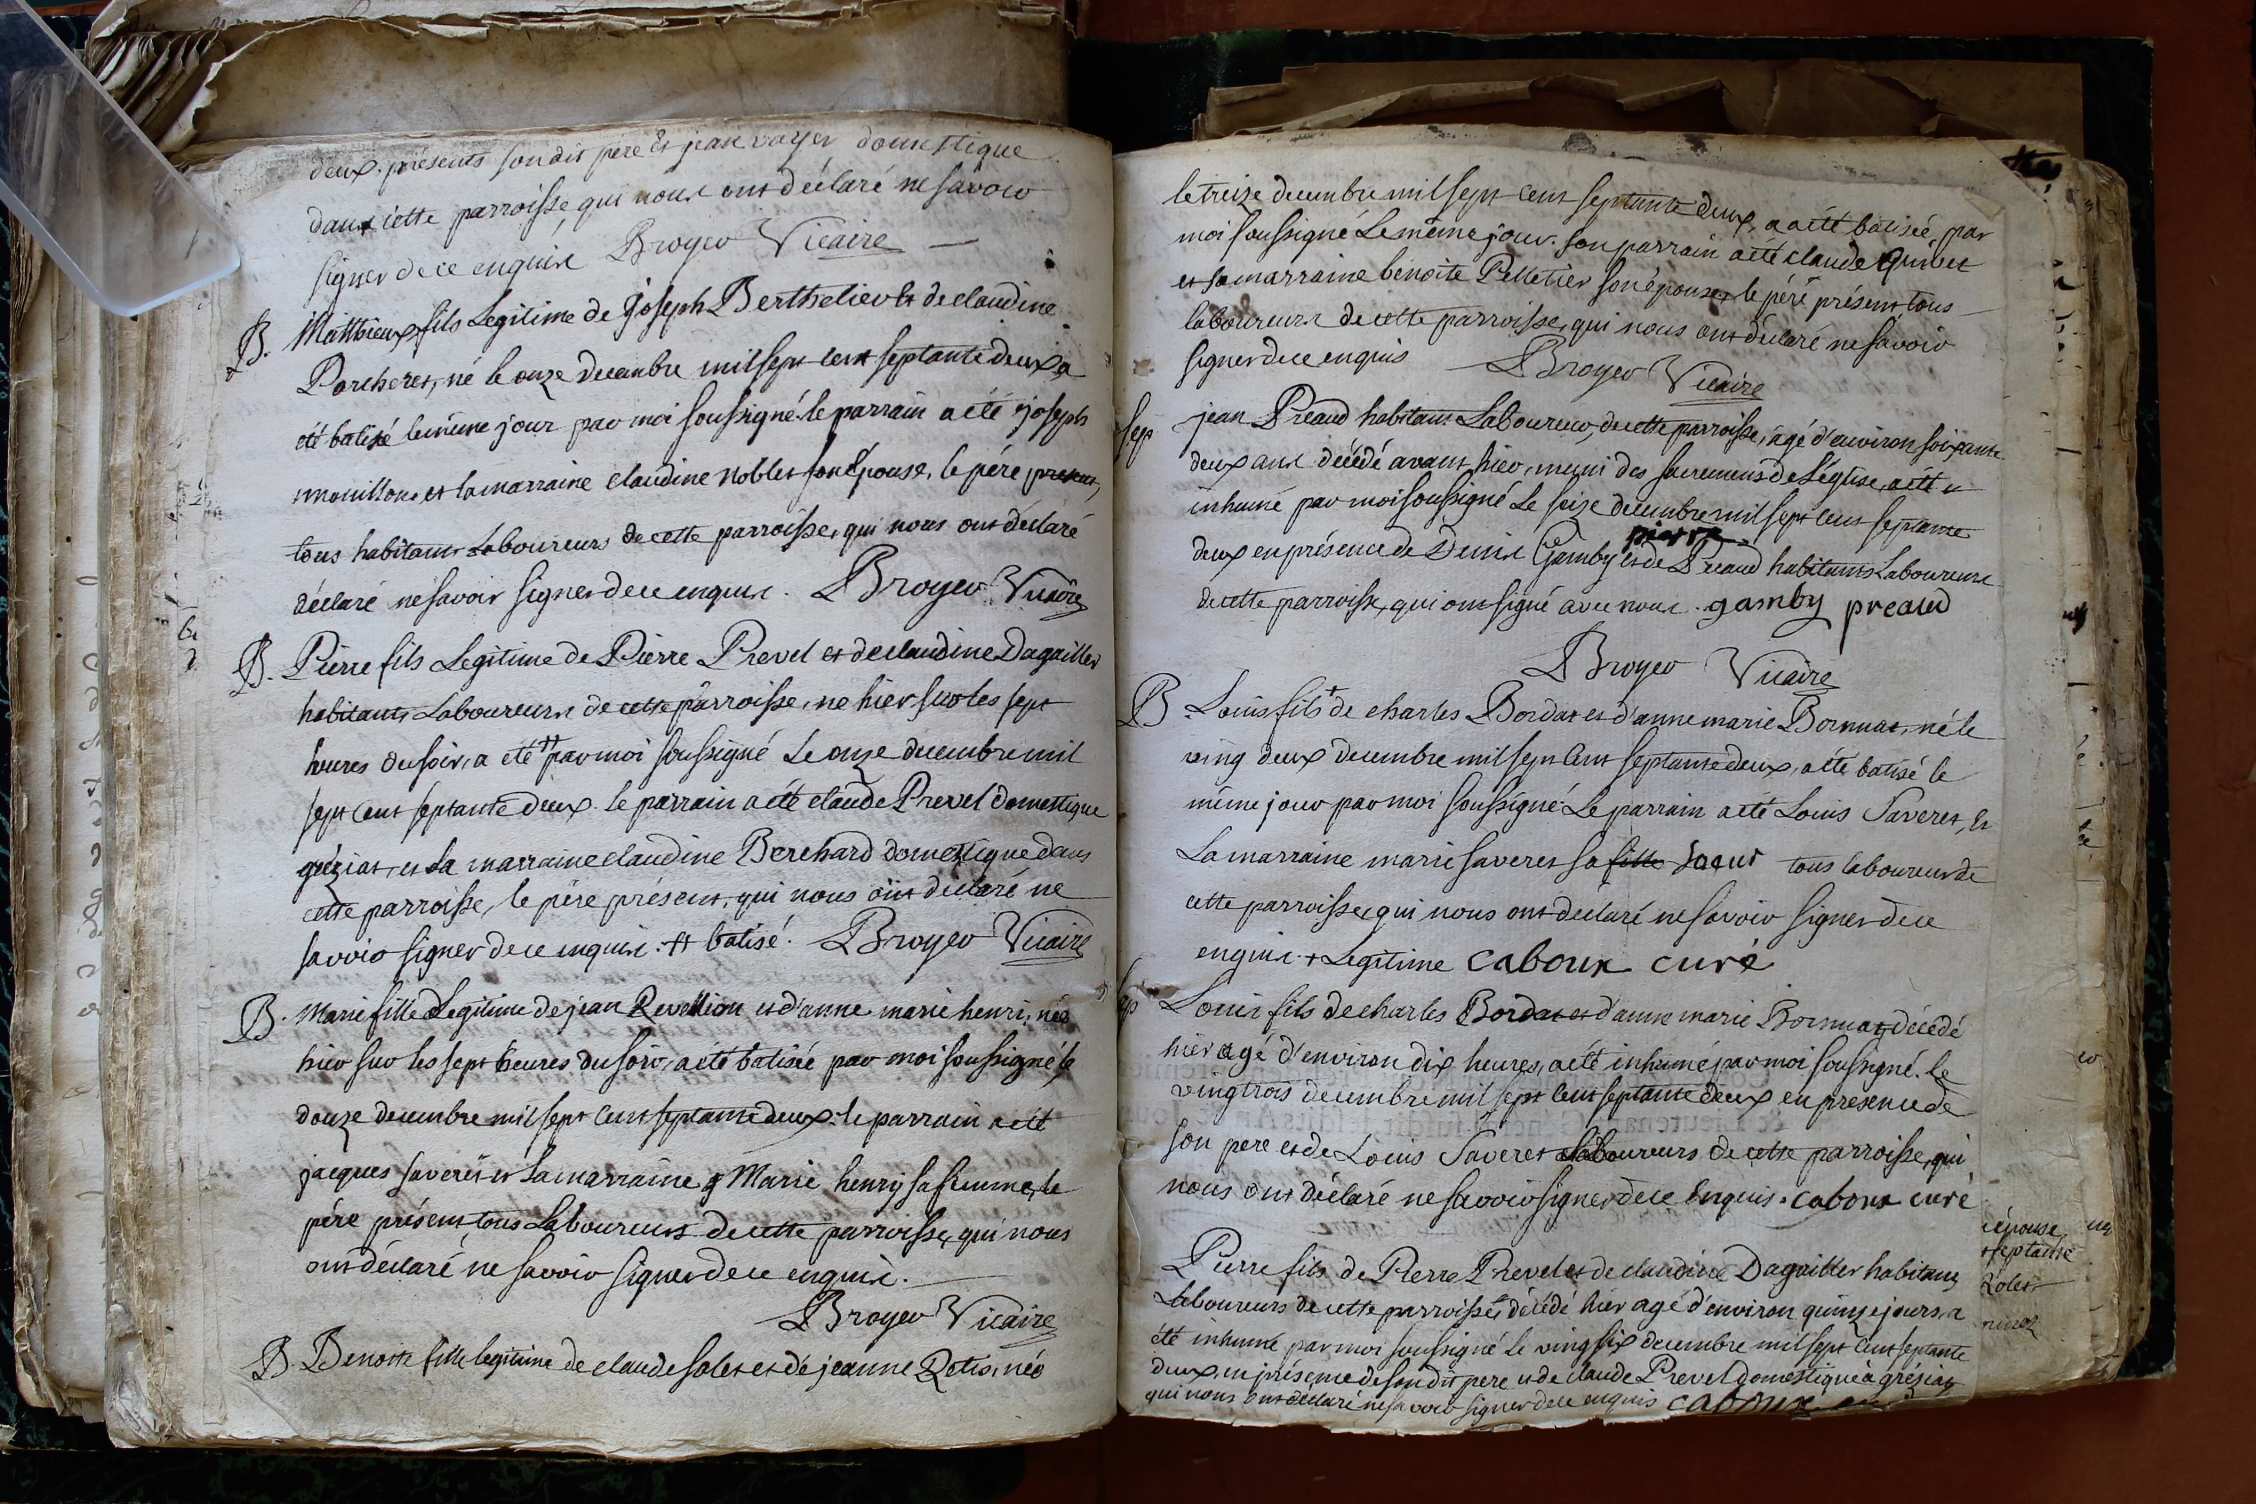 deux présents son dit père et jean voyer domestique
dans cette parroisse, qui nous ont déclaré ne savoir
signer de ce enquis Broyer Vicaire
B. Matthieux fils Legitime de joseph Berthelier et de claudine
Porcheret, né le onze decembre mil sept cent septante deux, a
été batisé le même jour par moi soussigné. le parrain a été joseph
mouillon et la marraine claudine Noblet son épouse, le père present,
tous habitants Laboureurs de cette parroisse, qui nous ont declaré
déclaré ne savoir signer de ce enquis. Broyer Vicaire
B. Pierre fils Legitime de Pierre Prevel et de claudine Dagailler
habitants Laboureurs de cette parroisse, ne hier sur les sept
heures du soir, a été ++ par moi soussigné Le onze decembre mil
sept cent septante deux. le parrain a été claude Prevel domestique
gréziat, et La marraine claudine Berchard domestique dans
cette parroisse, le père présent, qui nous ont declaré ne
savoir signer de ce enquis. ++ batisé. Broyer Vicaire
B. Marie fille Legitime de jean Revellion et d'anne marie henri, née
hier sur les sept heures du soir, a été batisée par moi soussigné le
douze decembre mil sept cent septante deux. le parrain a été
jacques saveret et La marraine Marie henry sa femme, le
père présent, tous Laboureurs de cette parroisse, qui nous
ont déclaré ne savoir signer de ce enquis.
Broyer Vicaire
B. Benoite fille legitime de claude solet et de jeanne Rotis, née
le treize decembre mil sept cent septante deux, a été batisée par
moi soussigné Le même jour. son parrain a été claude Quivet
et sa marraine benoite Pelletier son épouse, le père présent, tous
laboureurs de cette parroisse, qui nous ont déclaré ne savoir
signer de ce enquis Broyer Vicaire
sep jean Preaud habitant Laboureur, de cette parroisse, agé d'environ soixante
deux ans décédé avant hier, muni des sacrements de L'église, a été
inhumé par moi soussigné Le seize decembre mil sept cent septante
pierre
deux en présence de Denis Gamby et de Preaud habitants Laboureurs
de cette parroisse, qui ont signé avec nous. gamby preaud
Broyer Vicaire
B. Louis fils + de charles Bordat et d'anne marie Bornuat, né le
ving deux decembre mil sept cent septante deux, a été batisé le
même jour par moi soussigné Le parrain a été Louis Saveret, et
La marraine marie saveret sa fille soeur tous laboureur de
cette parroisse, qui nous ont déclaré ne savoir signer de ce
enquis. + Legitime caboux curé
sep Louis fils de charles Bordat et d'anne marie Bornuat décédé
hier agé d'environ dix heures, a été inhumé par moi soussigné. le
vingtrois decembre mil sept cent septante deux en presence de
son pere et de Louis Saveret Laboureurs de cette parroisse, qui
nous ont déclaré ne savoir signer de ce enquis. caboux curé
Pierre fils de Pierre Prevel et de claudine Dagailler habitans
Laboureurs de cette parroisse, décédé hier agé d'environ quinze jours, a
été inhumé par moi soussigné le ving six decembre mil sept cent septante
deux, en présence de son dit pere et de claude Prevel domestique à gréziat
qui nous ont déclaré ne savoir signer de ce enquis caboux
épouse
septante